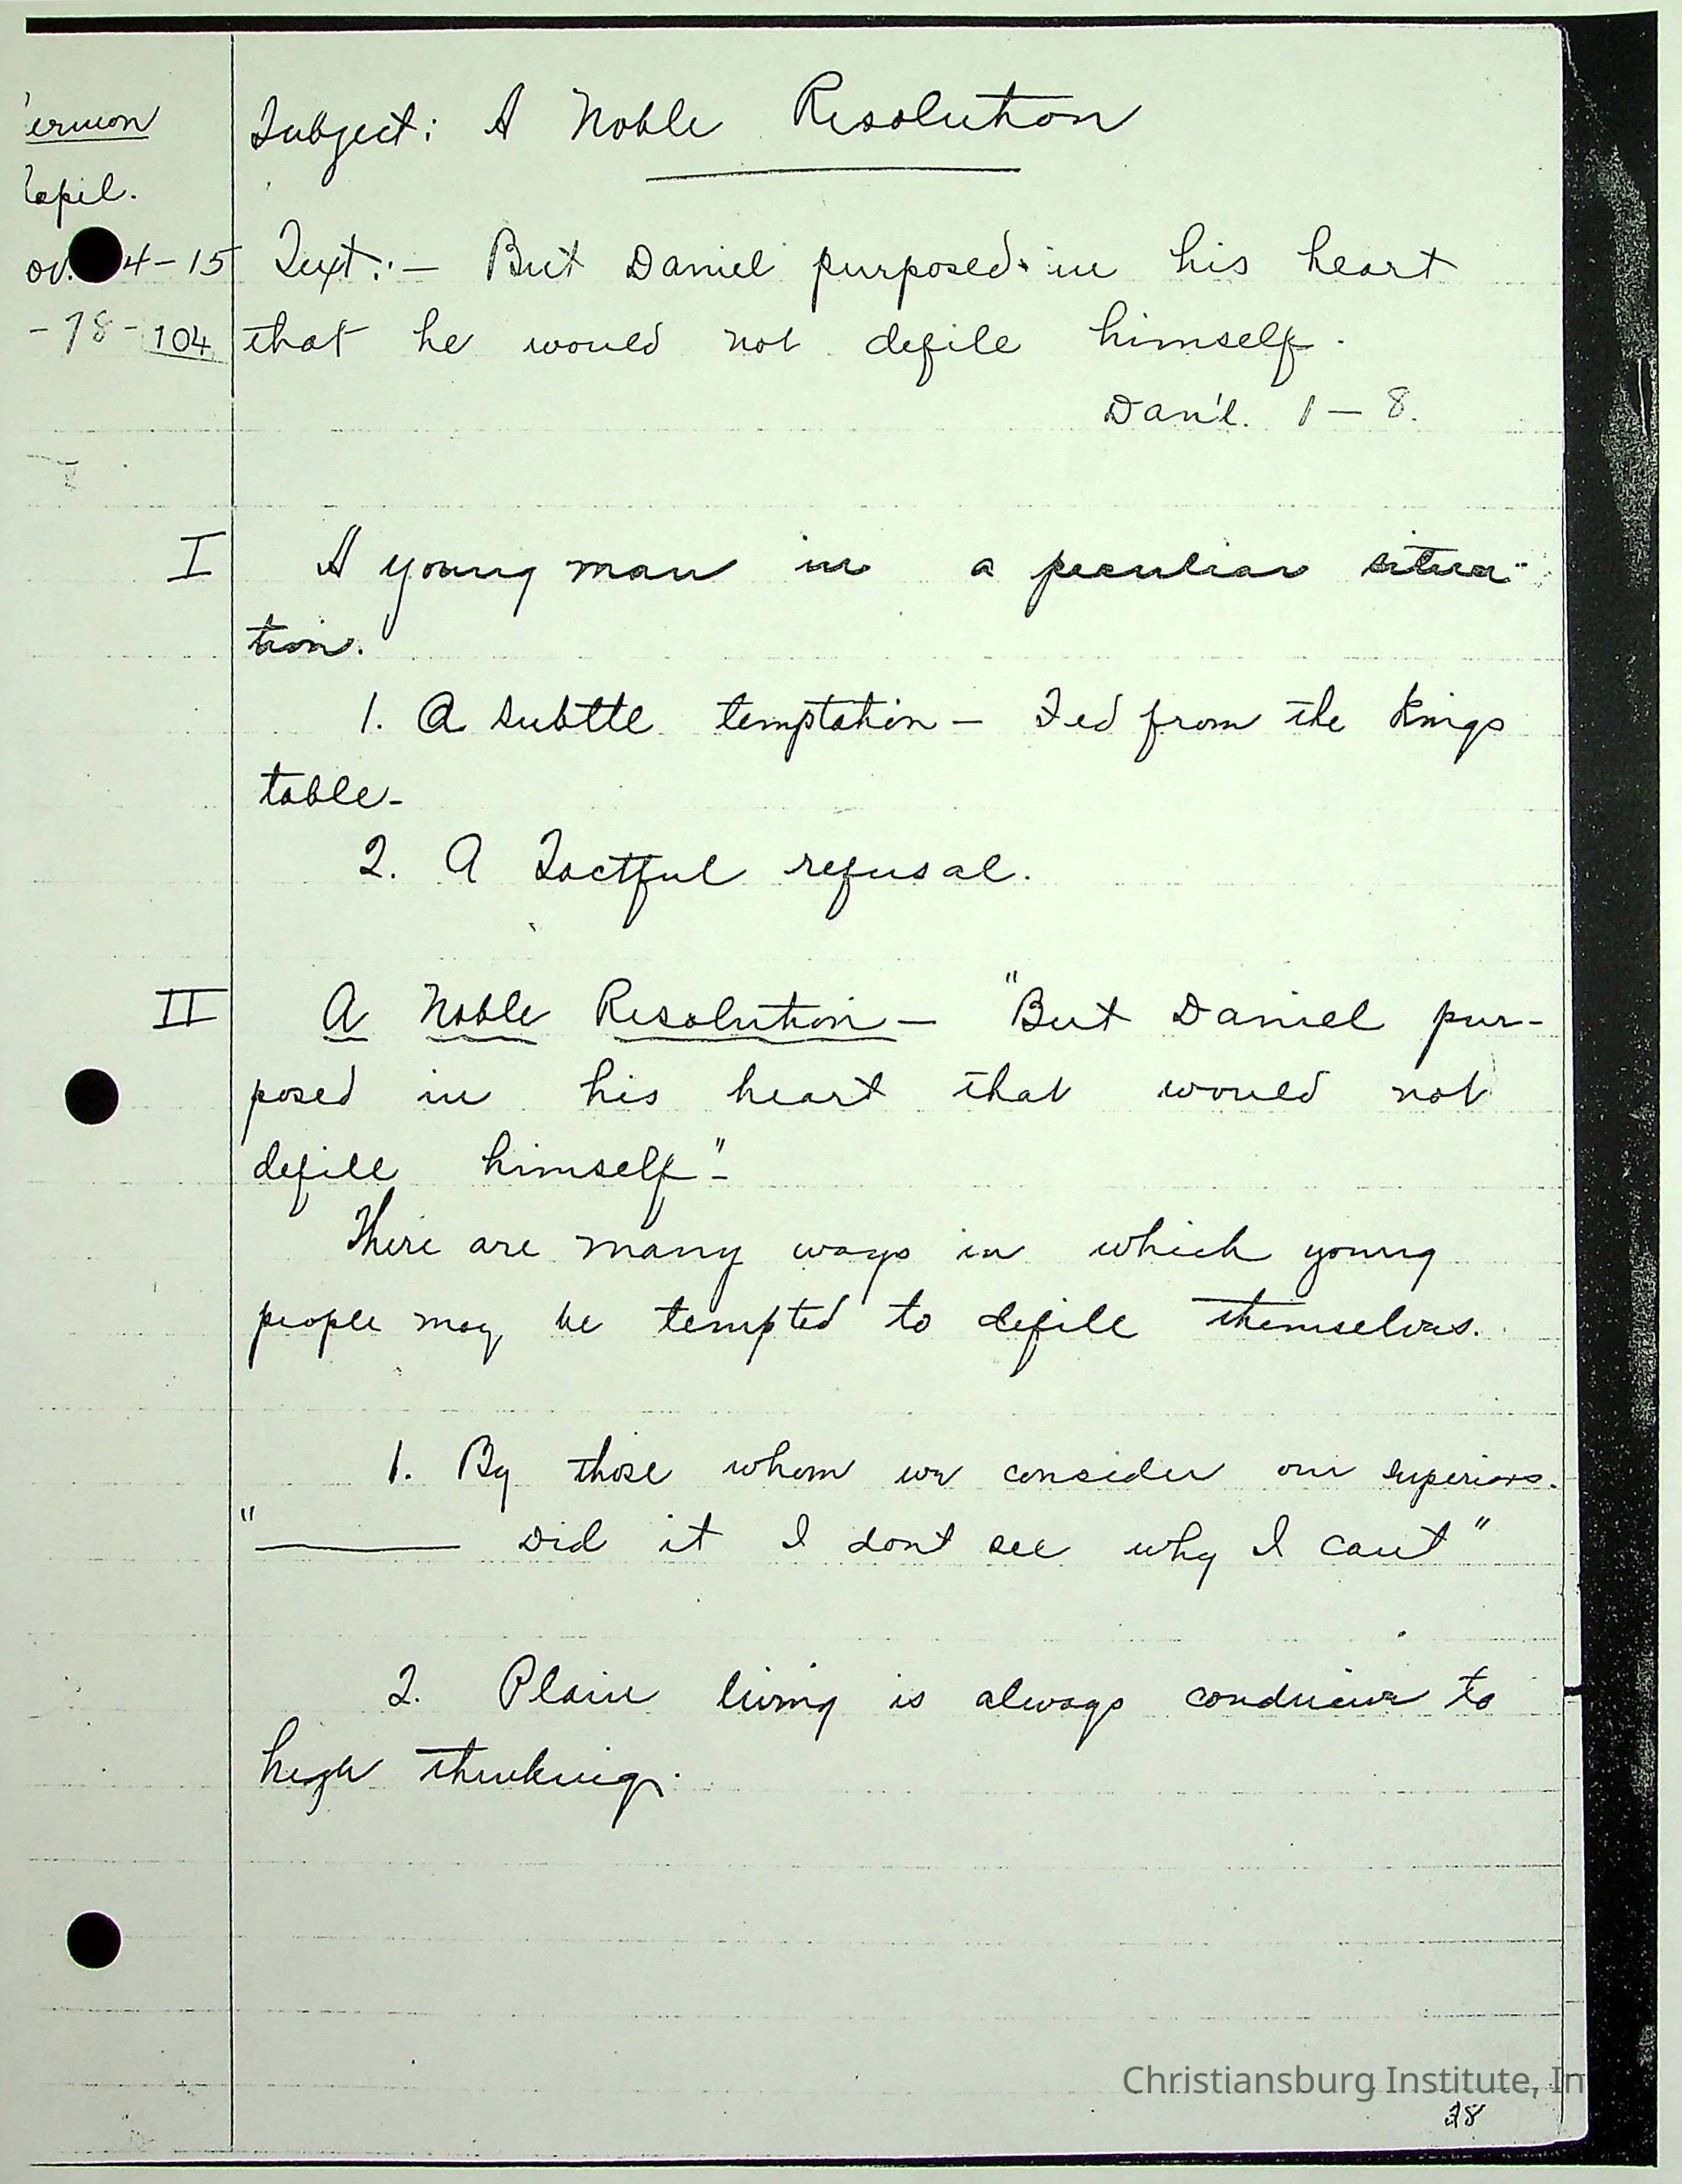 ermon
Subject: A Noble Resolution
apel.
ov. 4-15
Text:- But Daniel purposed in his heart
-78-104
that he would not defile himself.
Dan'l. 1-8.
I
A young man in a peculiar situa-
tion.
1. A subtle temptation - Fed from the Kings
table-
2. A Tactful refusal.
II
A Noble Resolution - "But Daniel pur-
posed in his heart that would not
defile himself"-
There are many ways in which young
people may be tempted to defile themselves.
1. By those whom we consider our superiors.
"——— Did it I dont see why I cant"
2. Plain living is always conducive to
high thinking.
Christiansburg Institute, In
28